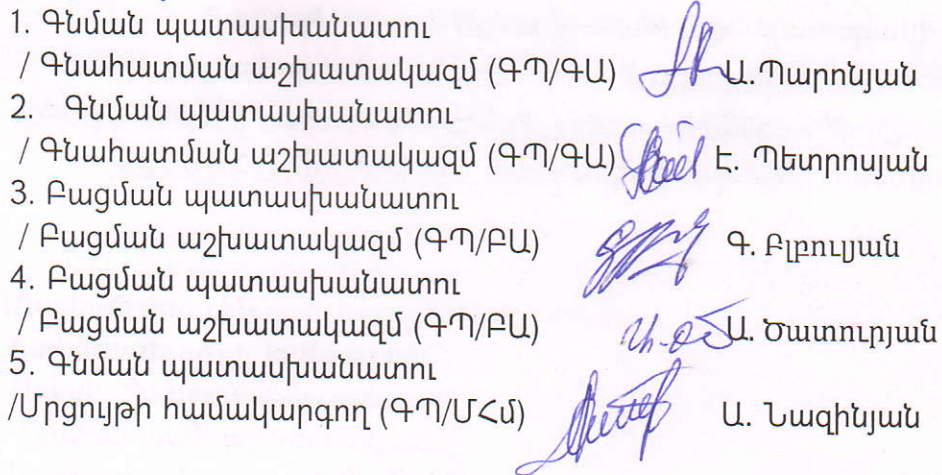 1. Գնման պատասխանատու
/ Գնահատման աշխատակազմ (ԳՊ/ԳԱ) Ա.Պարոնյան
2. Գնման պատասխանատու
/ Գնահատման աշխատակազմ (ԳՊ/ԳԱ) Է. Պետրոսյան
3. Բացման պատասխանատու
/ Բացման աշխատակազմ (ԳՊ/ԲԱ) Գ. Բլբուլյան
4. Բացման պատասխանատու
/ Բացման աշխատակազմ (ԳՊ/ԲԱ) Ա. Ծատուրյան
5. Գնման պատասխանատու
/Մրցույթի համակարգող (ԳՊ/ՄՀմ) Ա. Նազինյան